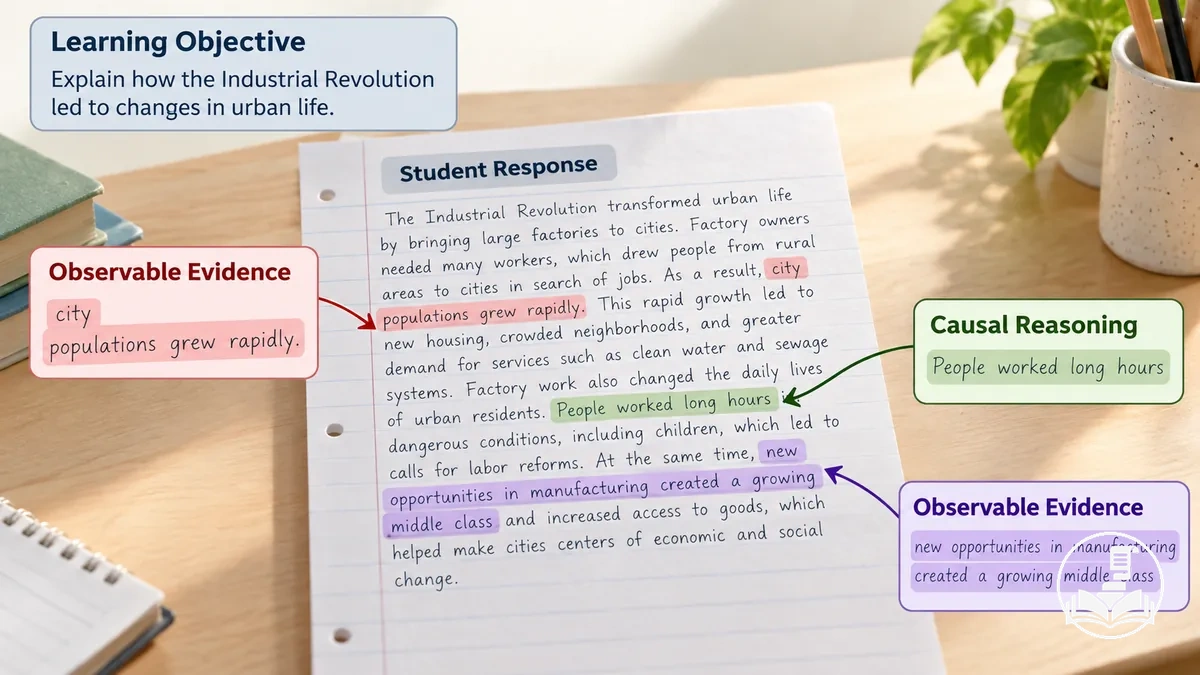 Learning Objective
Explain how the Industrial Revolution
led to changes in urban life.
Student Response
The Industrial Revolution transformed urban life
by bringing large factories to cities. Factory owners
needed many workers, which drew people from rural
areas to cities in search of jobs. As a result, city
populations grew rapidly. This rapid growth led to
new housing, crowded neighborhoods, and greater
demand for services such as clean water and sewage
systems. Factory work also changed the daily lives
of urban residents. People worked long hours
dangerous conditions, including children, which led to
calls for labor reforms. At the same time, new
opportunities in manufacturing created a growing
middle class and increased access to goods, which
helped make cities centers of economic and social
change.
Observable Evidence
city
populations grew rapidly.
Causal Reasoning
People worked long hours
Observable Evidence
new opportunities in manufacturing
created a growing middle class